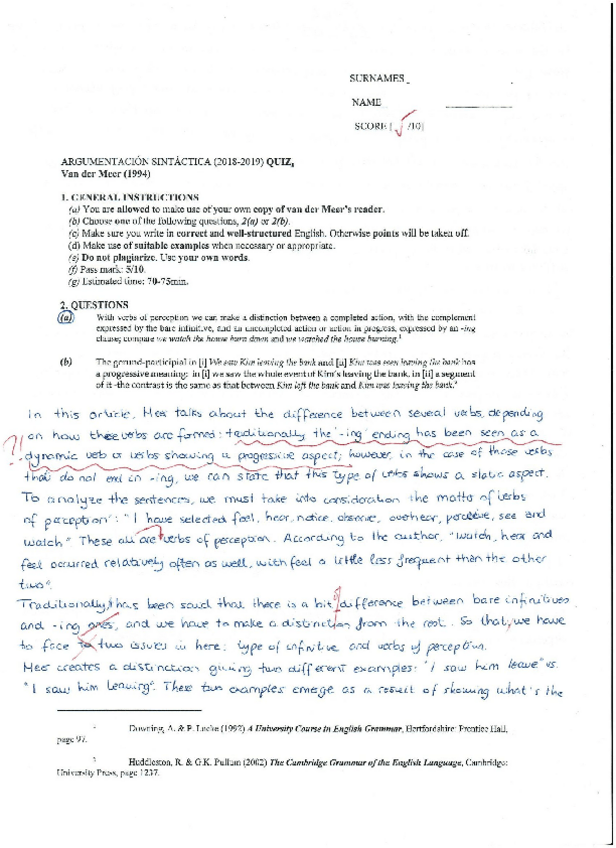 SURNAMES
NAME
SCORE ( /10)
ARGUMENTACIÓN SINTÁCTICA (2018-2019) QUIZ,
Van der Meer (1994)
1. GENERAL INSTRUCTIONS
(a) You are allowed to make use of your own copy of van der Meer's reader.
(b) Choose one of the following questions, 2(a) or 2(b).
(c) Make sure you write in correct and well-structured English. Otherwise points will be taken off.
(d) Make use of suitable examples when necessary or appropriate.
(e) Do not plagiarize. Use your own words.
(f) Pass mark: 5/10.
(g) Estimated time: 70-75min.
2. QUESTIONS
(a) With verbs of perception we can make a distinction between a completed action, with the complement
expressed by the bare infinitive, and an uncompleted action or action in progress, expressed by an -ing
clause; compare we watch the house burn down and we watched the house burning.¹
(b) The gerund-participial in [i] We saw Kim leaving the bank and [ii] Kim was seen leaving the bank has
a progressive meaning: in [i] we saw the whole event of Kim's leaving the bank, in [ii] a segment
of it -the contrast is the same as that between Kim left the bank and Kim was leaving the bank.²
In this article, Meer talks about the difference between several verbs, depending
on how these verbs are formed: traditionally the '-ing' ending has been seen as a
?! dynamic verb or verbs showing a progressive aspect; however, in the case of those verbs
that do not end in -ing, we can state that this type of verbs shows a static aspect.
To analyze the sentences, we must take into consideration the matter of verbs
of perception": "I have selected feel, hear, notice, observe, overhear, perceive, see and
watch" These all are verbs of perception. According to the author, "watch, hear and
feel occurred relatively often as well, with feel a little less frequent than the other
two".
Traditionally, has been said that there is a bit difference between bare infinitives
and -ing ones, and we have to make a distinction from the rest. So that, we have
to face to two issues in here: type of infinitive and verbs of perception.
Meer creates a distinction giving two different examples: "I saw him leave" vs.
"I saw him leaving". These two examples emerge as a result of showing what's the
Downing, A. & P. Locke (1992) A University Course in English Grammar, Hertfordshire: Prentice Hall,
page 97.
Huddleston, R. & G.K. Pullum (2002) The Cambridge Grammar of the English Language, Cambridge:
University Press, page 1237.